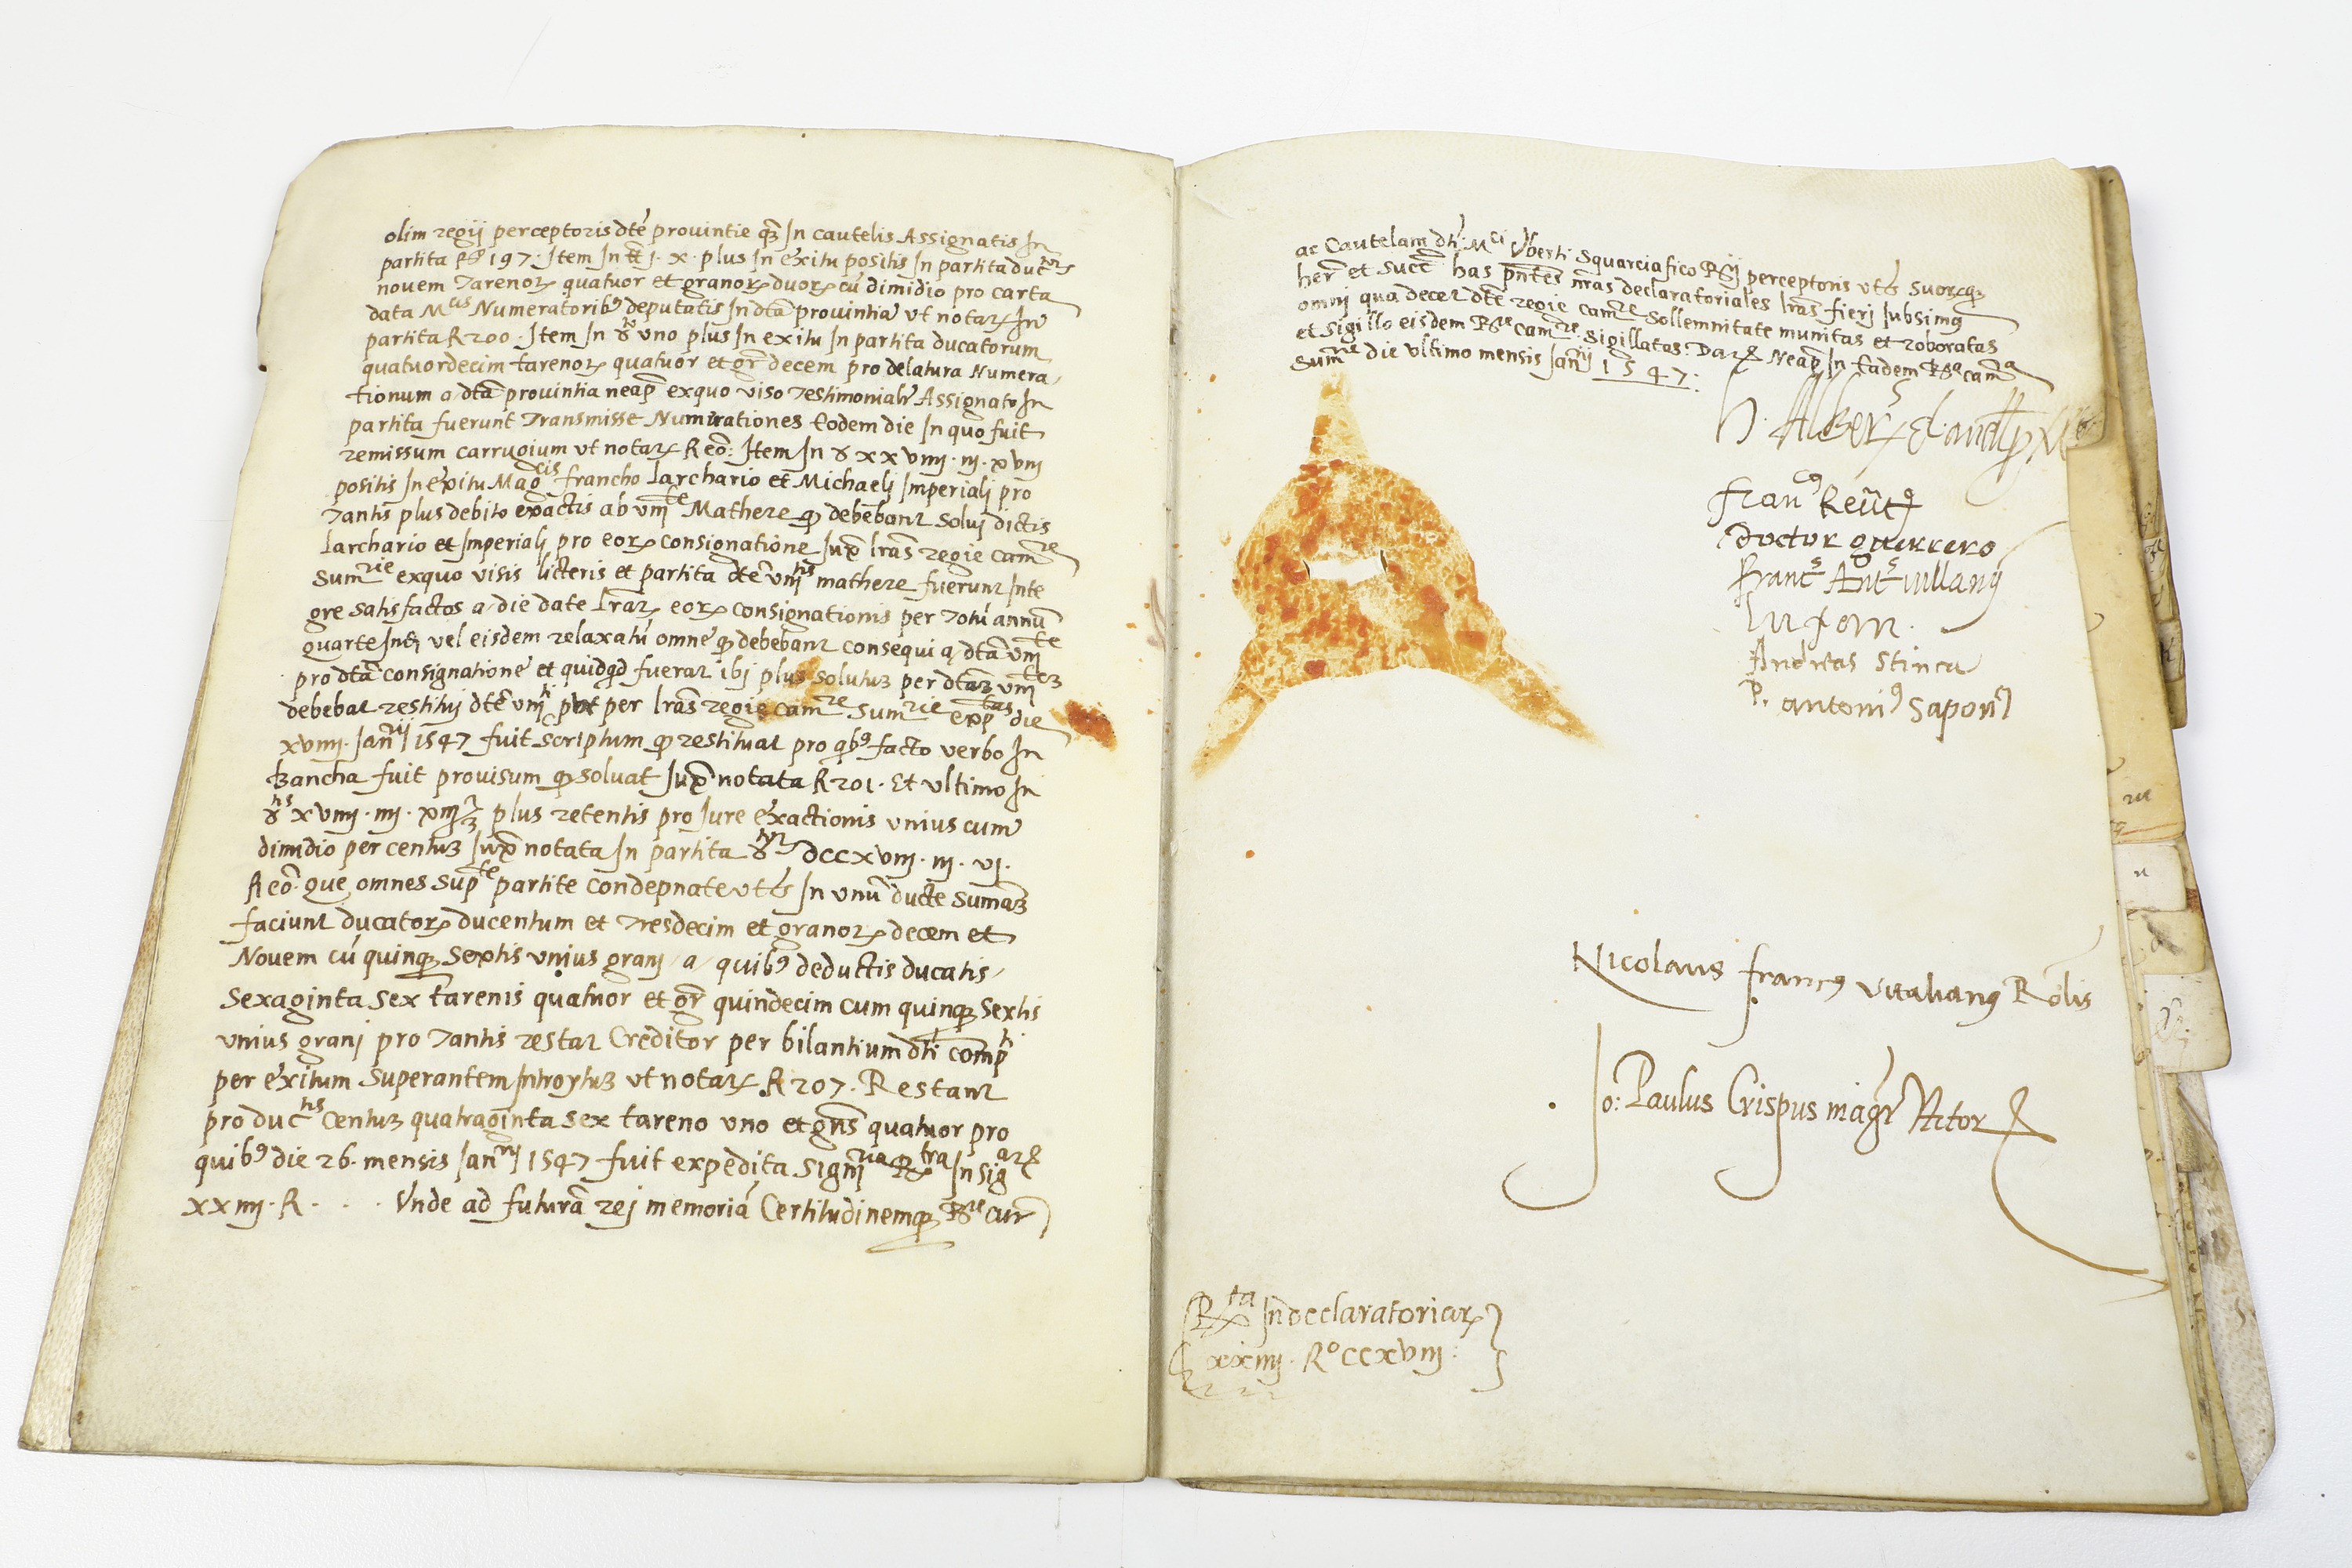 olim regij perceptoris dte prouintie q3 In cautelis Assignatis In
partita 197. Item In j. x. plus In exitu positis In partita duc
nouem Tarenor quatuor et granor duor cu dimidio pro carta
data Numeratorib9 deputatis In dta prouintia vt notar In
partita R 200. Item In vno plus In exitu In partita ducatorum
quatuordecim tarenor quatuor et gr decem pro delatura Numera
tionum a dta prouintia neap exquo viso Testimoniali Assignato In
partita fuerunt Transmisse Numerationes eodem die In quo fuit
remissum carrugium vt notar Reo: Item In xxviiij. iij. xviij
positis In exitu Mag cis francho larchario et Michaelj Imperialj pro
Tantis plus debito exactis ab vni te Mathere q debebant Soluj dictis
larchario et Imperialj pro eor consignatione Iux lras regie cam re
Sum rie exquo visis litteris et partita dte vni mathere fuerunt Inte
gre Satisfactos a die date lrar eor consignationis per Totu annu
quarte Int vel eisdem relaxatu omne q debebant consequi a dta vni te
pro dta consignatione et quidqd fuerat ibj plus Solutu3 per dta3 vni te3
debebat restituj dte vni ti put per lras regie cam re Sum rie exp tas die
xviiij. Ian ij 1547 fuit Scriptum q restituat pro qb9 facto verbo In
bancha fuit prouisum q soluat Iux notata R 201. Et vltimo In
xviiij. iiij. xiiij plus retentis pro Iure exactionis vnius cum
dimidio per centu3 Iux notata In partita DCCxviij. iij. vj.
Reo. que omnes Sup te partite condepnate vts In vnu ducte Suma3
faciunt ducator ducentum et Tresdecim et granor decem et
Nouem cu quinq3 Sextis vnius granj a quib9 deductis ducatis
Sexaginta Sex tarenis quatuor et gr quindecim cum quinq3 Sextis
vnius granj pro Tantis restat Creditor per bilantium dti comp ti
per exitum Superantem Introytu3 vt notar R 207. Restant
pro duc tis Centu3 quatraginta Sex tareno vno et gnis quatuor pro
quib9 die 26. mensis Ian ij 1547 fuit expedita Sign In Sig
xxiiij. R . . . Vnde ad futura rej memoria Certitudinemq3 cur
ac Cautelam dti M ci Vberti Squarciafico perceptoris vts Suorq3
her et Succ has pntes nras declaratoriales lras fierj Iubsimus
omnj qua decet dte regie cam re Sollemnitate munitas et roboratas
et Sigillo eisdem cam re Sigillatas. Neap In eadem cam a
Sum rie die vltimo mensis Ian ij 1547:
fran cus
Doctor guerrero
franc s Ant s villanj
Andreas Stinca
P. antoni9 Sapon
Nicolaus franc9 vitalian9 Rolis
Jo: Paulus Crispus magr Actor
In declaratoriar
xxiiij. Ro CCxviij.